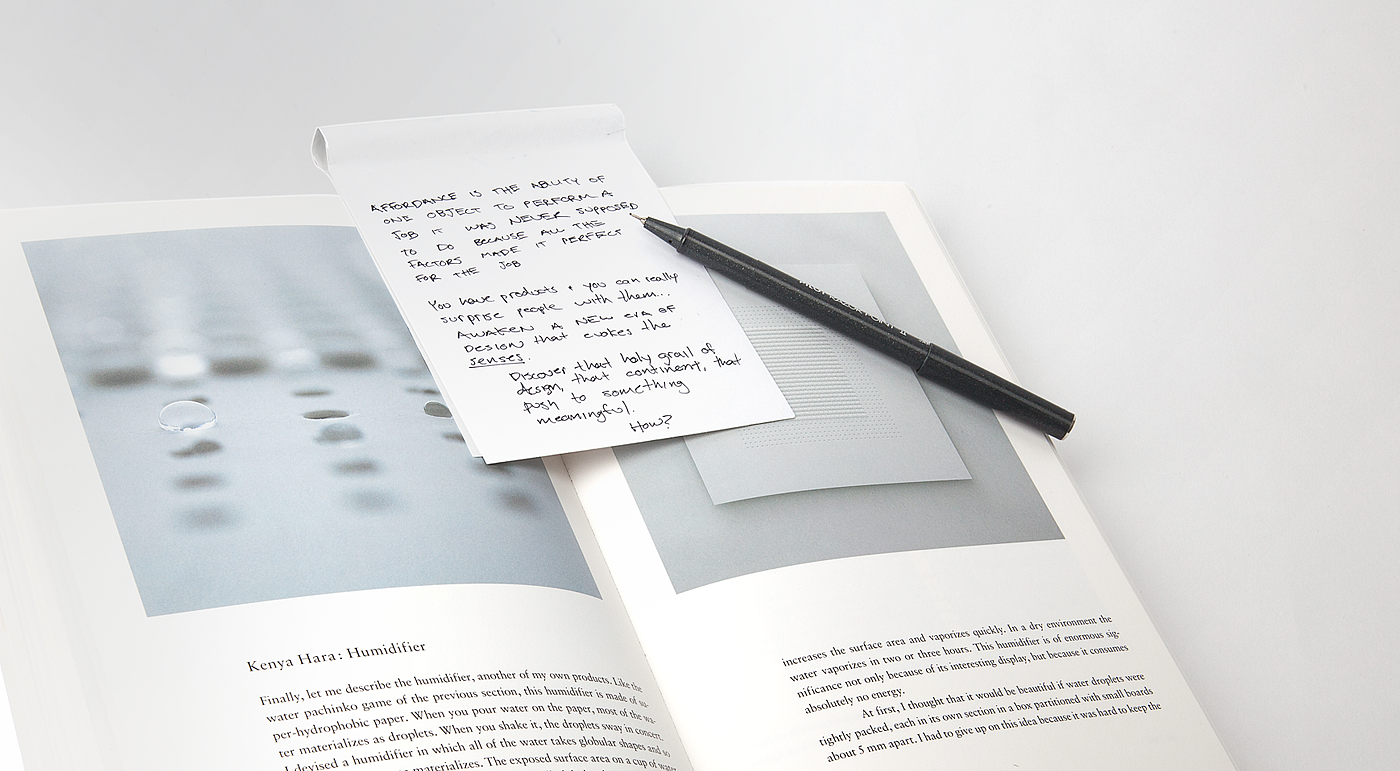 AFFORDANCE IS THE ABILITY OF
ONE OBJECT TO PERFORM A
JOB IT WAS NEVER SUPPOSED
TO DO BECAUSE ALL THE
FACTORS MADE IT PERFECT
FOR THE JOB
You have products & you can really
surprise people with them...
AWAKEN A NEW ERA OF
DESIGN that evokes the
senses.
Discover that holy grail of
design, that continent, that
push to something
meaningful.
How?
Kenya Hara: Humidifier
Finally, let me describe the humidifier, another of my own products. Like the
water pachinko game of the previous section, this humidifier is made of su-
per-hydrophobic paper. When you pour water on the paper, most of the wa-
ter materializes as droplets. When you shake it, the droplets sway in concert.
I devised a humidifier in which all of the water takes globular shapes and so
materializes. The exposed surface area on a cup of water
increases the surface area and vaporizes quickly. In a dry environment the
water vaporizes in two or three hours. This humidifier is of enormous sig-
nificance not only because of its interesting display, but because it consumes
absolutely no energy.
At first, I thought that it would be beautiful if water droplets were
tightly packed, each in its own section in a box partitioned with small boards
about 5 mm apart. I had to give up on this idea because it was hard to keep the